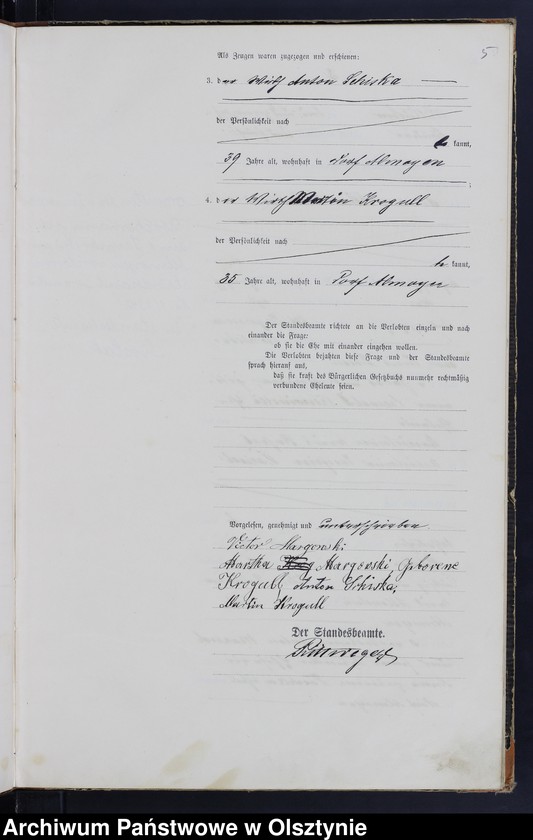 5
Als Zeugen waren zugezogen und erschienen:
3. der Wirth Anton Schiska
der Persönlichkeit nach
be kannt,
39 Jahre alt, wohnhaft in Dorf Almoyen
;
4. der Wirth Martin Krogull
der Persönlichkeit nach
be kannt,
35 Jahre alt, wohnhaft in Dorf Almoyen
Der Standesbeamte richtete an die Verlobten einzeln und nach
einander die Frage:
ob sie die Ehe mit einander eingehen wollen.
Die Verlobten bejahten diese Frage und der Standesbeamte
sprach hierauf aus,
daß sie kraft des Bürgerlichen Gesetzbuchs nunmehr rechtmäßig
verbundene Eheleute seien.
Vorgelesen, genehmigt und unterschrieben
Victor Margowski
Martha Margowski, Geborene
Krogull, Anton Schiska,
Martin Krogull
Der Standesbeamte.
Archiwum Państwowe w Olsztynie